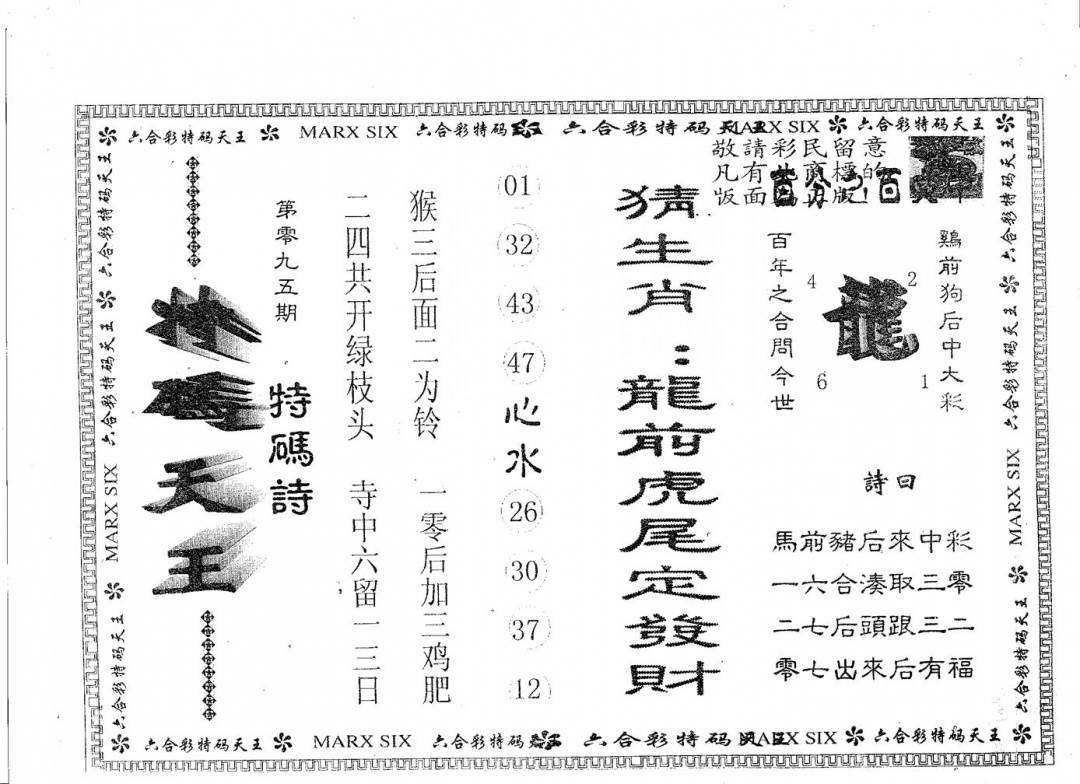 六合彩特码天王 MARX SIX 六合彩特码 六合彩特码天王 MARX SIX 六合彩特码天王
敬請彩民留意
凡有 商標的
版面 版!
特碼天王
第零九五期
特碼詩
二四共开绿枝头 寺中六留一三日
猴三后面二为铃 一零后加三鸡肥
01
32
43
47
心水
26
30
37
12
猜生肖：龍前虎尾定發財
百年之合問今世
龍
4
2
6
1
鷄前狗后中大彩
詩曰
馬前豬后來中彩
一六合湊取三零
二七后頭跟三二
零七出來后有福
六合彩特码天王 MARX SIX 六合彩特码天王
六合彩特码天王 MARX SIX 六合彩特码天王
六合彩特码天王 MARX SIX 六合彩特码 六合彩特码天王 MARX SIX 六合彩特码天王